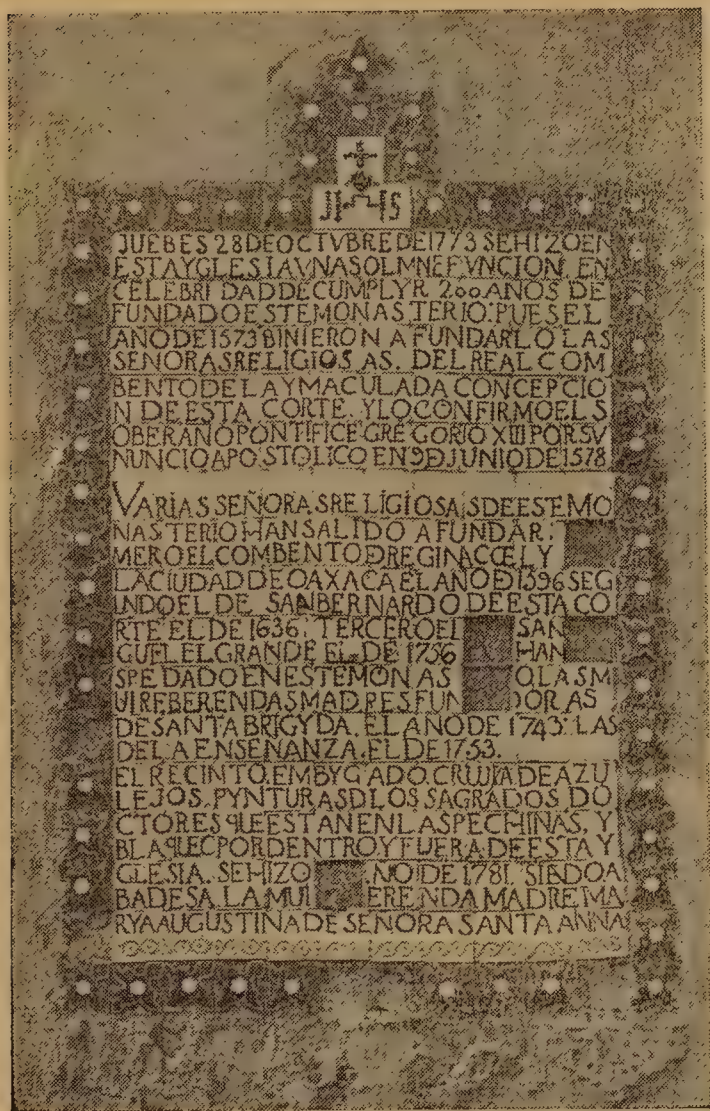 JHS
JUEBES 28 DE OCTVBRE DE 1773 SE HIZO EN
ESTA YGLESIA VNA SOLMNE FVNCION EN
CELEBRIDAD DE CUMPLYR 200 AÑOS DE
FUNDADO ESTE MONASTERIO. PUES EL
AÑO DE 1573 BINIERON A FUNDARLO LAS
SEÑORAS RELIGIOSAS. DEL REAL COM
BENTO DE LA YMACULADA CONCEPCIO
N DE ESTA CORTE. Y LO CONFIRMO EL S
OBERANO PONTIFICE GREGORIO XIII POR SV
NUNCIO APOSTOLICO EN 9 D JUNIO DE 1578
VARIAS SEÑORAS RELIGIOSAS DE ESTE MO
NASTERIO HAN SALIDO A FUNDAR.
MERO EL COMBENTO D REGINA CŒLY
LA CIUDAD DE OAXACA EL AÑO D 1396 SEG
UNDO EL DE SAN BERNARDO DE ESTA CO
RTE EL DE 1636. TERCERO EL SAN
GUEL EL GRANDE EL DE 1756 HAN
SPEDADO EN ESTE MONAS O LAS M
UI REBERENDAS MADRES FUN DORAS
DE SANTA BRIGYDA. EL AÑO DE 1743. LAS
DE LA ENSEÑANZA. EL DE 1753.
EL RECINTO. EMBYGADO. CRUJIA DE AZU
LEJOS. PYNTURAS D LOS SAGRADOS DO
CTORES QUE ESTAN EN LAS PECHINAS, Y
BLAQUEC POR DENTRO Y FUERA DE ESTA Y
GLESIA. SE HIZO ÑO DE 1781. SIEDO A
BADESA. LA MUI ERENDA MADRE MA
RYA AUGUSTINA DE SEÑORA SANTA ANNA